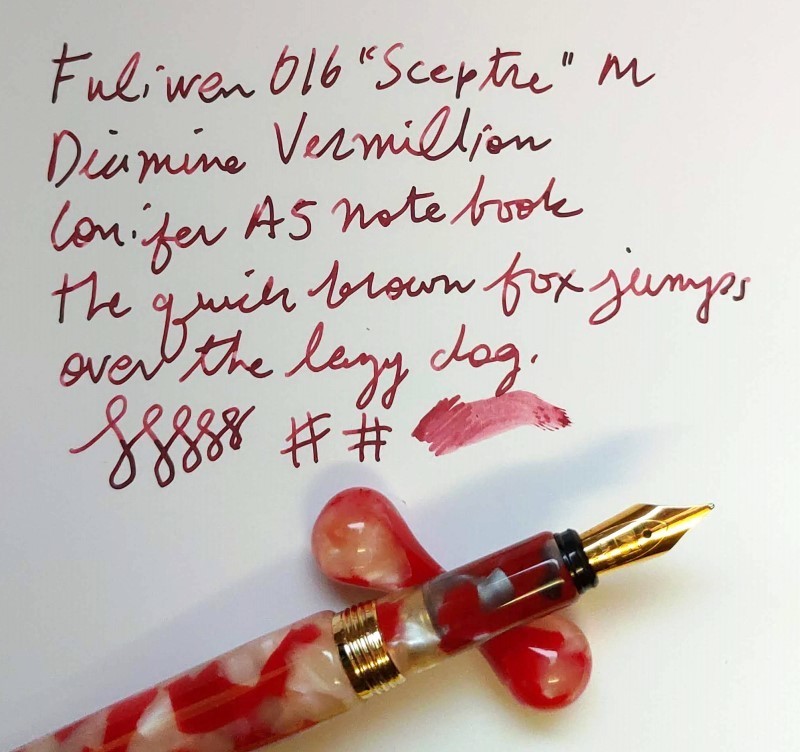 Fuliwen 016 "Sceptre" M
Diamine Vermillion
Conifer A5 notebook
the quick brown fox jumps
over the lazy dog.
# #